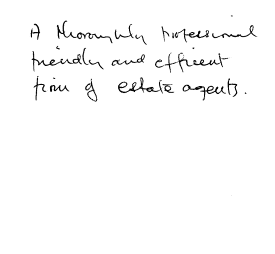 A thoroughly professional
friendly and efficient
firm of estate agents.